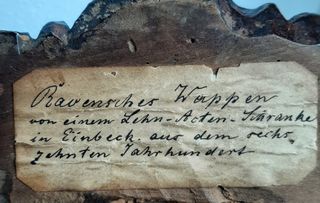 Ravensches Wappen
von einem Lehn-Acten-Schranke
in Einbeck aus dem sechs,
zehnten Jahrhundert